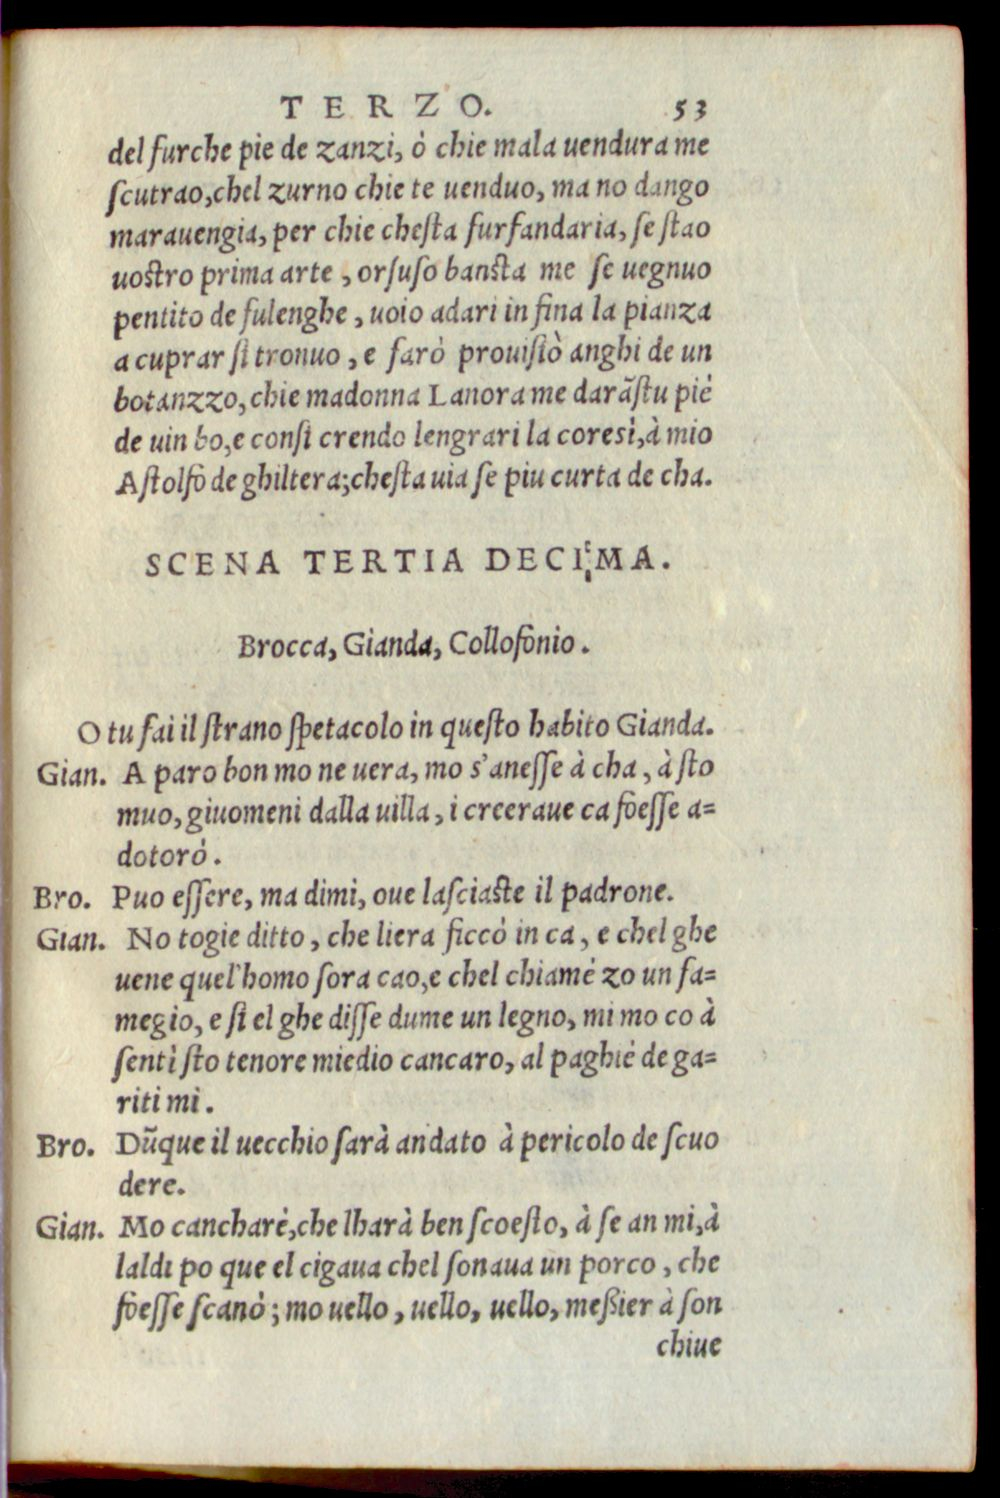 TERZO. 53
del furche pie de zanzi, ò chie mala uendura me
scutrao,chel zurno chie te uenduo, ma no dango
marauengia, per chie chesta furfandaria, se stao
uostro prima arte , orsuso bansta me se uegnuo
pentito de fulenghe , uoio adari in fina la pianza
a cuprar si tronuo , e farò prouisiò anghi de un
botanzzo, chie madonna Lanora me darãstu pié
de uin bo,e consi crendo lengrari la coresì,à mio
Astolfo de ghiltera;chesta uia se piu curta de cha.
SCENA TERTIA DECIMA.
Brocca, Gianda, Collofonio.
O tu fai il strano spetacolo in questo habito Gianda.
Gian. A paro bon mo ne uera, mo s'anesse à cha , à sto
muo, giuomeni dalla uilla , i creeraue ca foesse a=
dotorò.
Bro. Puo essere, ma dimi, oue lasciaste il padrone.
Gian. No togie ditto , che liera ficcò in ca , e chel ghe
uene quel'homo sora cao,e chel chiamé zo un fa=
megio, e si el ghe disse dume un legno, mi mo co à
sentì sto tenore miedio cancaro, al paghié de ga=
riti mi .
Bro. Dũque il uecchio sarà andato à pericolo de scuo
dere.
Gian. Mo cancharé,che lharà ben scoesto, à se an mi,à
laldi po que el cigaua chel sonaua un porco , che
foesse scanò ; mo uello , uello, uello, meßier à son
chiue